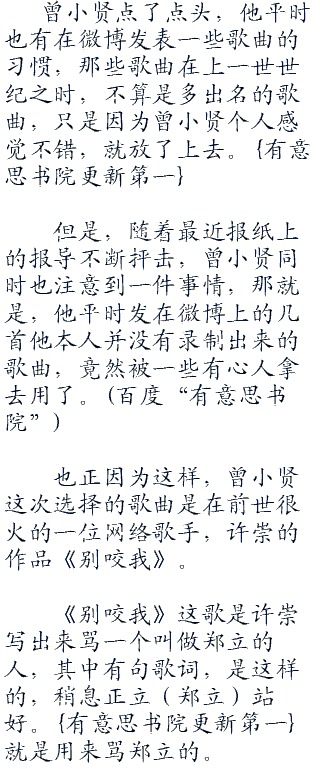 曾小贤点了点头，他平时
也有在微博发表一些歌曲的
习惯，那些歌曲在上一世世
纪之时，不算是多出名的歌
曲，只是因为曾小贤个人感
觉不错，就放了上去。{有意
思书院更新第一}
但是，随着最近报纸上
的报导不断抨击，曾小贤同
时也注意到一件事情，那就
是，他平时发在微博上的几
首他本人并没有录制出来的
歌曲，竟然被一些有心人拿
去用了。(百度“有意思书
院”)
也正因为这样，曾小贤
这次选择的歌曲是在前世很
火的一位网络歌手，许崇的
作品《别咬我》。
《别咬我》这歌是许崇
写出来骂一个叫做郑立的
人，其中有句歌词，是这样
的，稍息正立（郑立）站
好。{有意思书院更新第一}
就是用来骂郑立的。